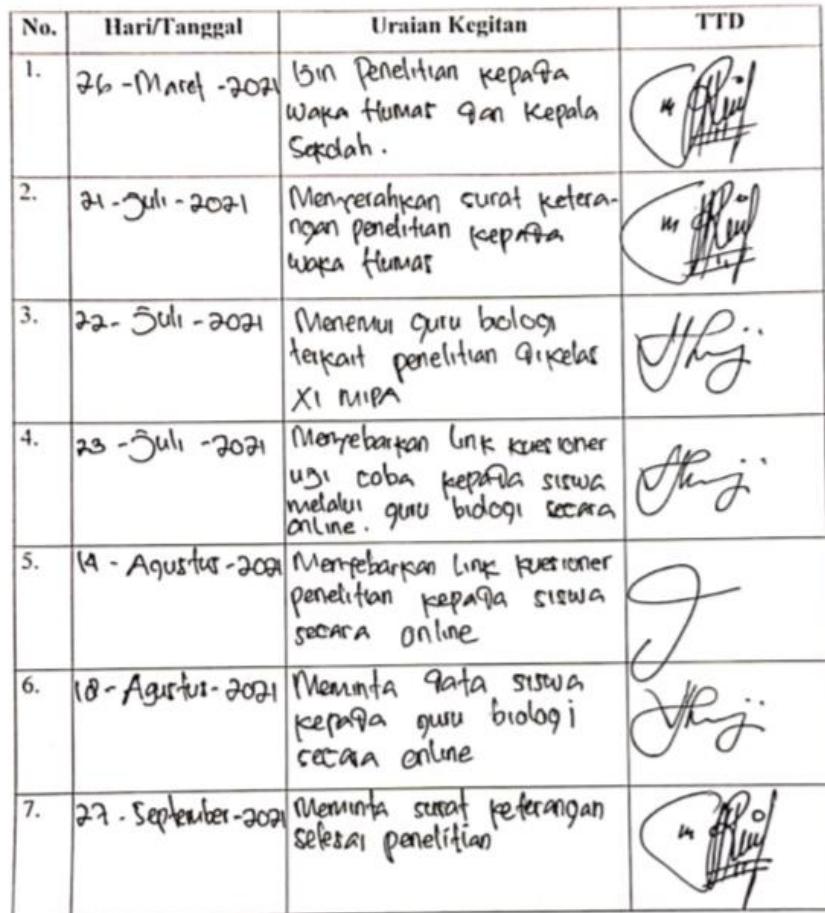 No. Hari/Tanggal Uraian Kegitan TTD
1. 26-Maret-2021 Izin Penelitian kepada
waka Humas dan Kepala
Sekolah.
2. 21-Juli-2021 Menyerahkan surat ketera-
ngan penelitian kepada
waka Humas
3. 22-Juli-2021 Menemui guru biologi
terkait penelitian dikelas
XI MIPA
4. 23-Juli-2021 Menyebarkan link kuesioner
uji coba kepada siswa
melalui guru biologi secara
online.
5. 14-Agustus-2021 Menyebarkan Link kuesioner
penelitian kepada siswa
secara online
6. 18-Agustus-2021 Meminta data siswa
kepada guru biologi
secara online
7. 27-September-2021 Meminta surat keterangan
selesai penelitian